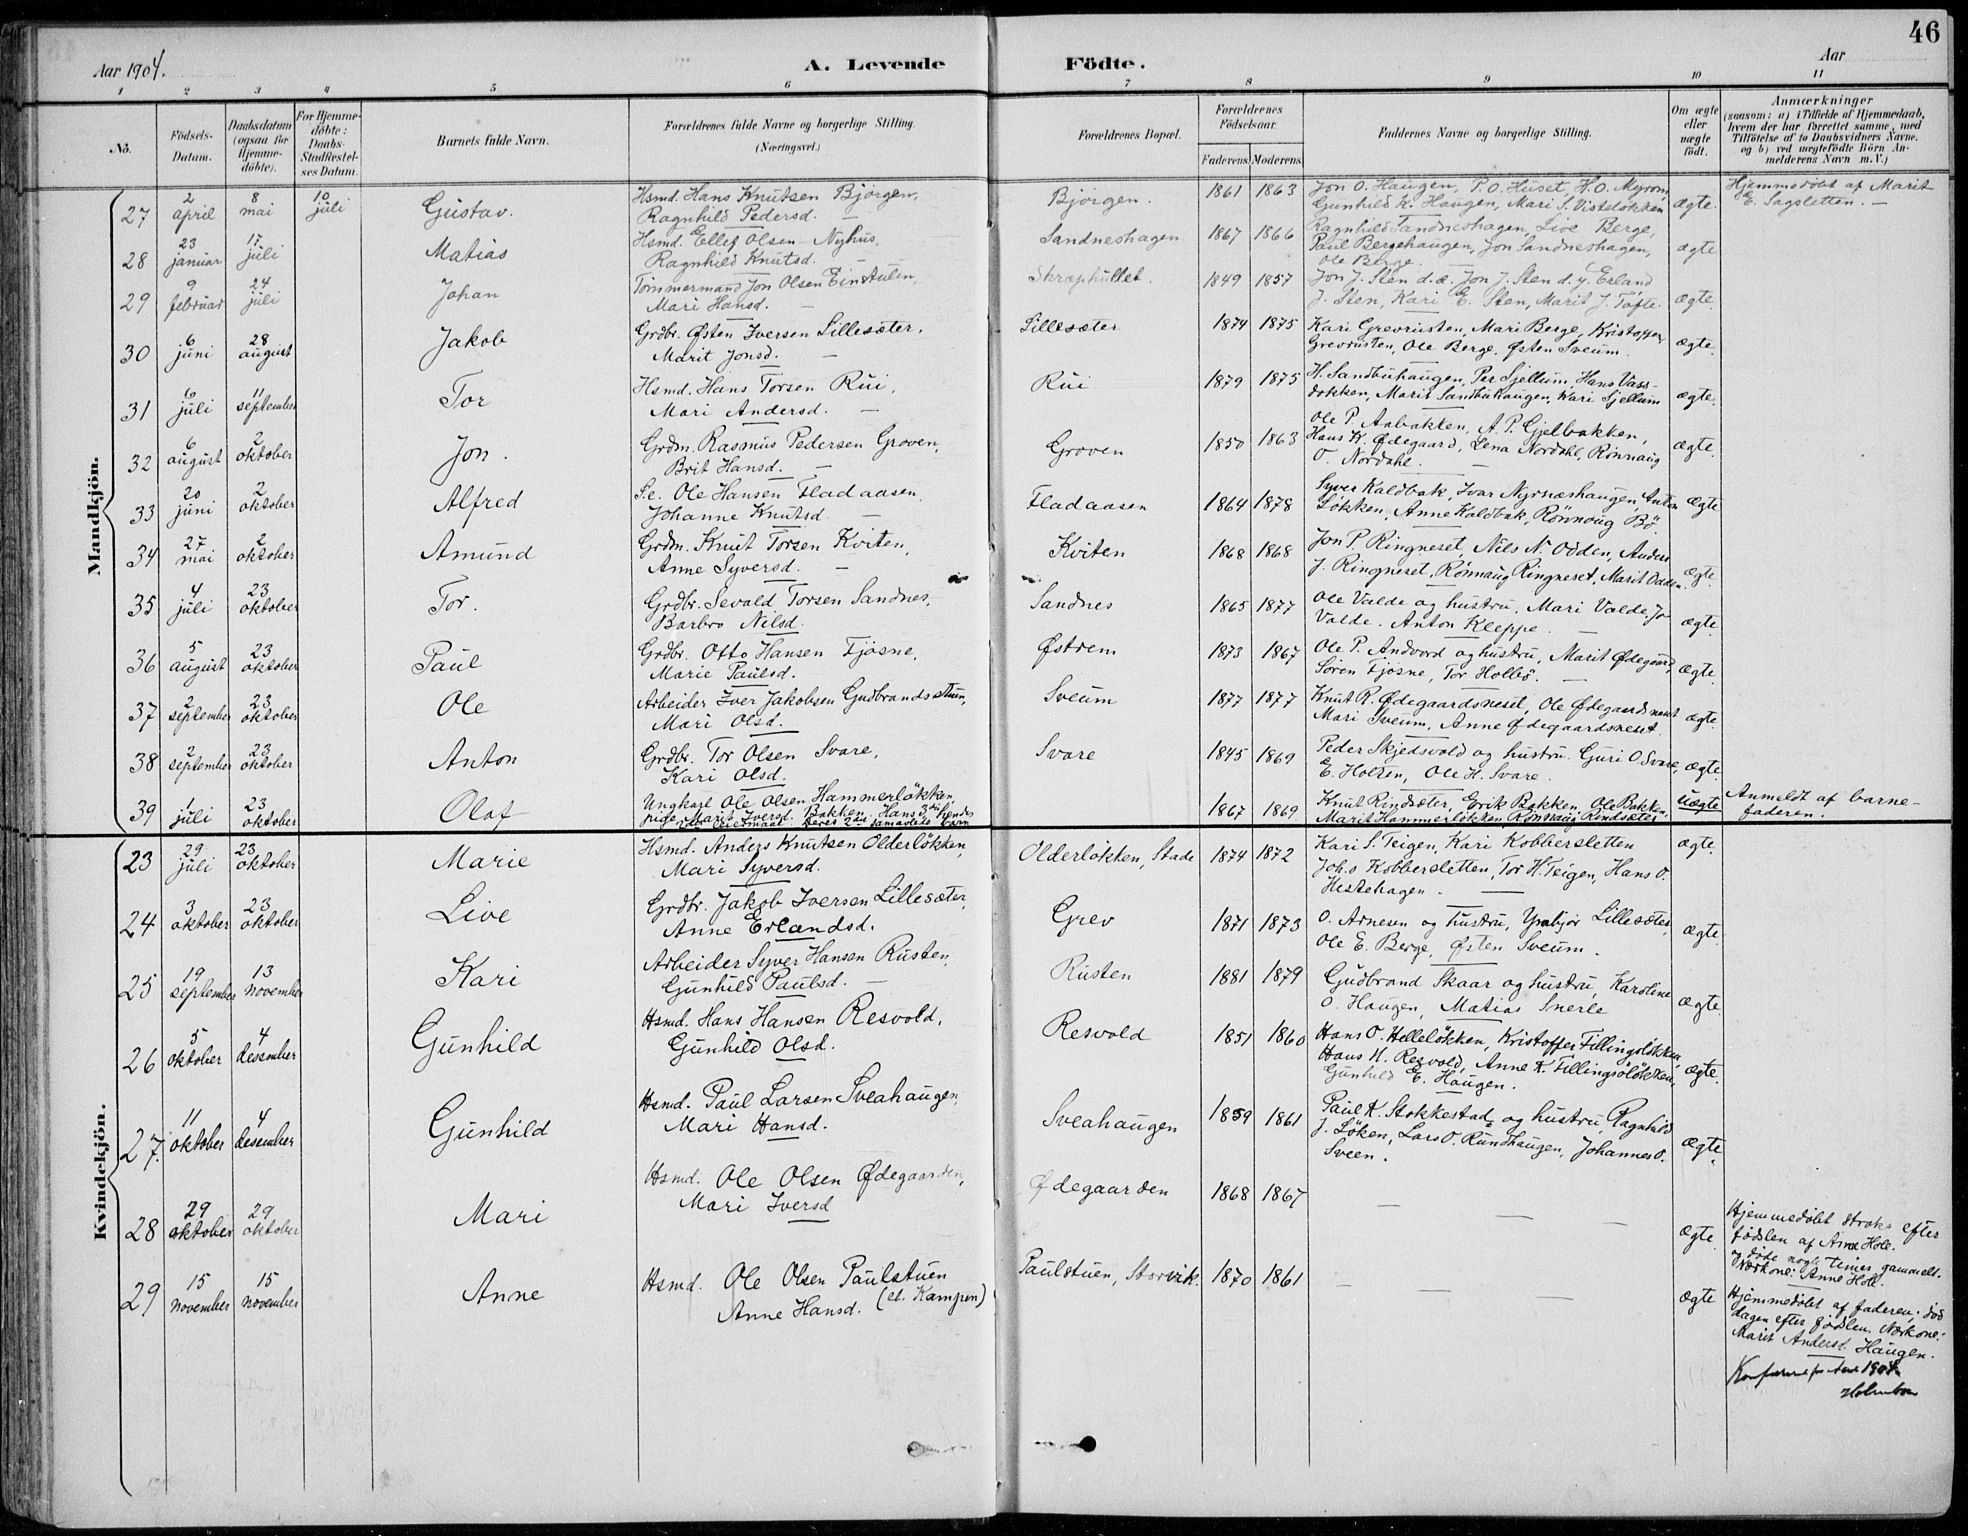 46
Aar 1904.
A. Levende Födte.
Aar
1 2 3 4 5 6 7 8 9 10 11
No.
Födsels-Datum.
Daabsdatum (ogsaa for Hjemme-döbte).
For Hjemme-döbte: Daabs-Stadfæstel-ses Datum.
Barnets fulde Navn.
Forældrenes fulde Navne og borgerlige Stilling. (Næringsvei.)
Forældrenes Bopæl.
Forældrenes Födselsaar.
Faderens. Moderens.
Faddernes Navne og borgerlige Stilling.
Om ægte eller uægte födt.
Anmærkninger
(saasom: a) i Tilfælde af Hjemmedaab,
hvem der har forrettet samme, med
Tilföielse af to Daabsvidners Navne.
og b) ved uægtefödte Börn An-
melderens Navn m. V.)
Mandkjön.
27 2 april 8 mai 10 juli Gustav. Hsmd. Hans Knutsen Bjørgen, Bjørgen. 1861 1863 Jon O. Haugen, P. O. Huset, H. O. Myrom, ægte. Hjemmedøbt af Marit
Ragnhild Pedersd. — Gunhild K. Haugen, Mari S. Visteløkken E. Sagsletten. —
28 23 januar 17 juli Matias Hsmd. Ellef Olsen Nyhus, Sandneshagen 1867 1866 Ragnhild Sandneshagen, Live Berge, ægte
Ragnhild Knutsd. — Paul Bergehaugen, Jon Sandneshagen,
Ole Berge.
29 9 februar 24 juli Johan Tømmermand Jon Olsen Einstulen, Skraphullet. 1849 1857 Jon J. Sten d.æ. Jon J. Sten d.y. Erland ægte.
Mari Hansd. — J. Sten, Kari E. Sten, Marit J. Tofte.
30 6 juni 28 august Jakob Grdbr. Østen Iversen Lillesæter. Lillesæter 1874 1875 Kari Grevrusten, Mari Berge, Kristoffer ægte.
Marit Jonsd. — Grevrusten, Ole Berge, Østen Sveum.
31 6 juli 11 september Tor Hsmd. Hans Torsen Rui, Rui 1879 1875 H. Sandbuhaugen, Per Sjellum, Hans Vass- ægte.
Mari Andersd. — dokken, Marit Sandbuhaugen, Kari Sjellum
32 6 august 2 oktober Jon. Grdm. Rasmus Pedersen Groven, Groven 1850 1863 Ole P. Aabakken, A. P. Gjelbakken, ægte.
Brit Hansd. — Hans K. Ødegaard, Lena Nordahl, Rønnaug
O. Nordahl. —
33 20 juni 2 oktober Alfred S.e. Ole Hansen Fladaasen, Fladaasen 1864 1878 Syver Kaldbak, Ivar Nyrnæshaugen, Anton ægte
Johanne Knutsd. — Løkken, Anne Kaldbak, Rønnaug Bø
34 27 mai 2 oktober Amund Grdm. Knut Torsen Kviten, Kviten 1868 1868 Jon P. Ringneset, Nils N. Odden, Anders ægte.
Anne Syversd. — J. Ringneset, Rønnaug Ringneset, Marit Odden.
35 4 juli 23 oktober Tor. Grdbr. Sevald Torsen Sandnes, Sandnes 1865 1877 Ole Valde og hustru, Mari Valde, Jo ægte.
Barbro Nilsd. Valde. Anton Kleppe. —
36 5 august 23 oktober Paul Grdbr. Otto Hansen Fjøsne, Østrem 1873 1867 Ole P. Andvord og hustru, Marit Ødegaard, ægte.
Marie Paulsd. Søren Fjøsne, Tor Holbø. —
37 2 september 23 oktober Ole Arbeider Iver Jakobsen Gudbrandsstuen, Sveum 1877 1877 Knut R. Ødegaardsneset, Ole Ødegaardsneset ægte.
Mari Olsd. Mari Sveum, Anne Ødegaardsneset.
38 2 september 23 oktober Anton Grdbr. Tor Olsen Svare, Svare 1845 1869 Peder Skjedsvold og hustru. Guri O. Svare, ægte.
Kari Olsd. E. Holsen, Ole H. Svare.
39 1 juli 23 oktober Olaf Ungkarl Ole Olsen Hammerløkken, 1867 1869 Knut Rindsæter, Erik Bakken, Ole Bakken, Uægte Anmeldt af barne-
pige Marit Iversd. Bakken. Hans 3die hendes Marit Hammerløkken, Rønnaug Rindsæter faderen.
2det leiermaal. Deres 2det samavlede barn
Kvindekjön.
23 29 juli 23 oktober Marie Hsmd. Anders Knutsen Olderløkken, Olderløkken, Stade 1874 1872 Kari S. Teigen, Kari Kobbersletten ægte.
Mari Syversd. Johs Kobbersletten, Tor H. Teigen, Hans O.
Hestehagen. —
24 3 oktober 23 oktober Live Grdbr. Jakob Iversen Lillesæter, Grev 1871 1873 O. Arnesen og hustru, Lillesæter, ægte.
Anne Erlandsd. Ole E. Berge, Østen Sveum.
25 19 september 13 november Kari Arbeider Syver Hansen Rusten, Rusten 1881 1879 Gudbrand Skaar og hustru, Karoline ægte
Gunhild Paulsd. — O. Haugen, Matias Snerle
26 5 oktober 4 desember Gunhild Hsmd. Hans Hansen Resvold, Resvold 1851 1860 Hans O. Helleløkken, Kristoffer Fillingsløkken, ægte.
Gunhild Olsd. Hans H. Resvold, Anne K. Fillingsløkken,
Gunhild E. Haugen.
27. 11 oktober 4 desember Gunhild Hsmd. Paul Larsen Sveahaugen, Sveahaugen 1859 1861 Paul K. Stokkestad og hustru, Ragnhild ægte.
Mari Hansd. J. Løken, Lars O. Rundhaugen, Johannes O.
Sveen.
28 29 oktober 29 oktober Mari Hsmd. Ole Olsen Ødegaarden, Ødegaarden 1868 1867 — — — ægte. Hjemmedøbt straks efter
Mari Iversd fødslen af Anne Holl.
og døde nogle timer gammelt.
Nærkone: Anne Holl.
29 15 november 15 november Anne Hsmd. Ole Olsen Paulstuen Paulstuen, Storvik. 1870 1861 — — — ægte Hjemmedøbt af faderen; død
Anne Hansd. (el. Kampen) dagen efter fødslen. Nærkone:
Marit Anderst. Haugen.
1904